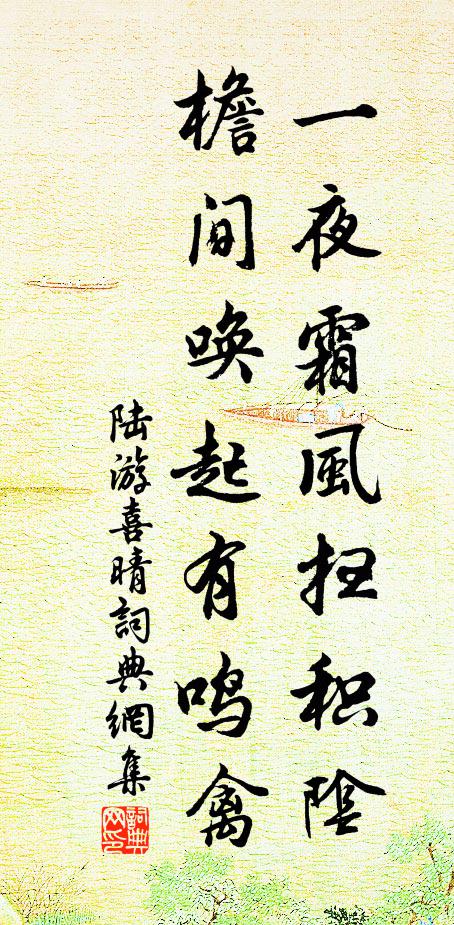 一夜霜風扫积陰
檐間唤起有鸣禽
陆游喜晴詞典網集
詞典网印